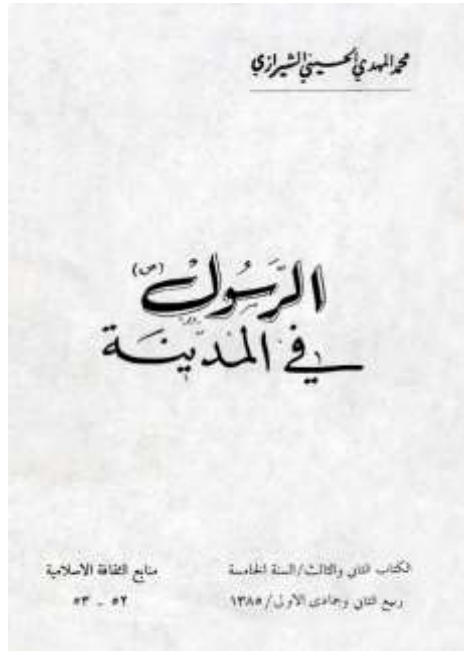 محمد المهدي الحسيني الشيرازي
الرسول (ص)
في المدينة
الكتاب الثاني والثالث/السنة الخامسة
ربيع الثاني وجمادى الاولى/١٣٨٥
منابع الثقافة الاسلامية
٥٢ - ٥٣